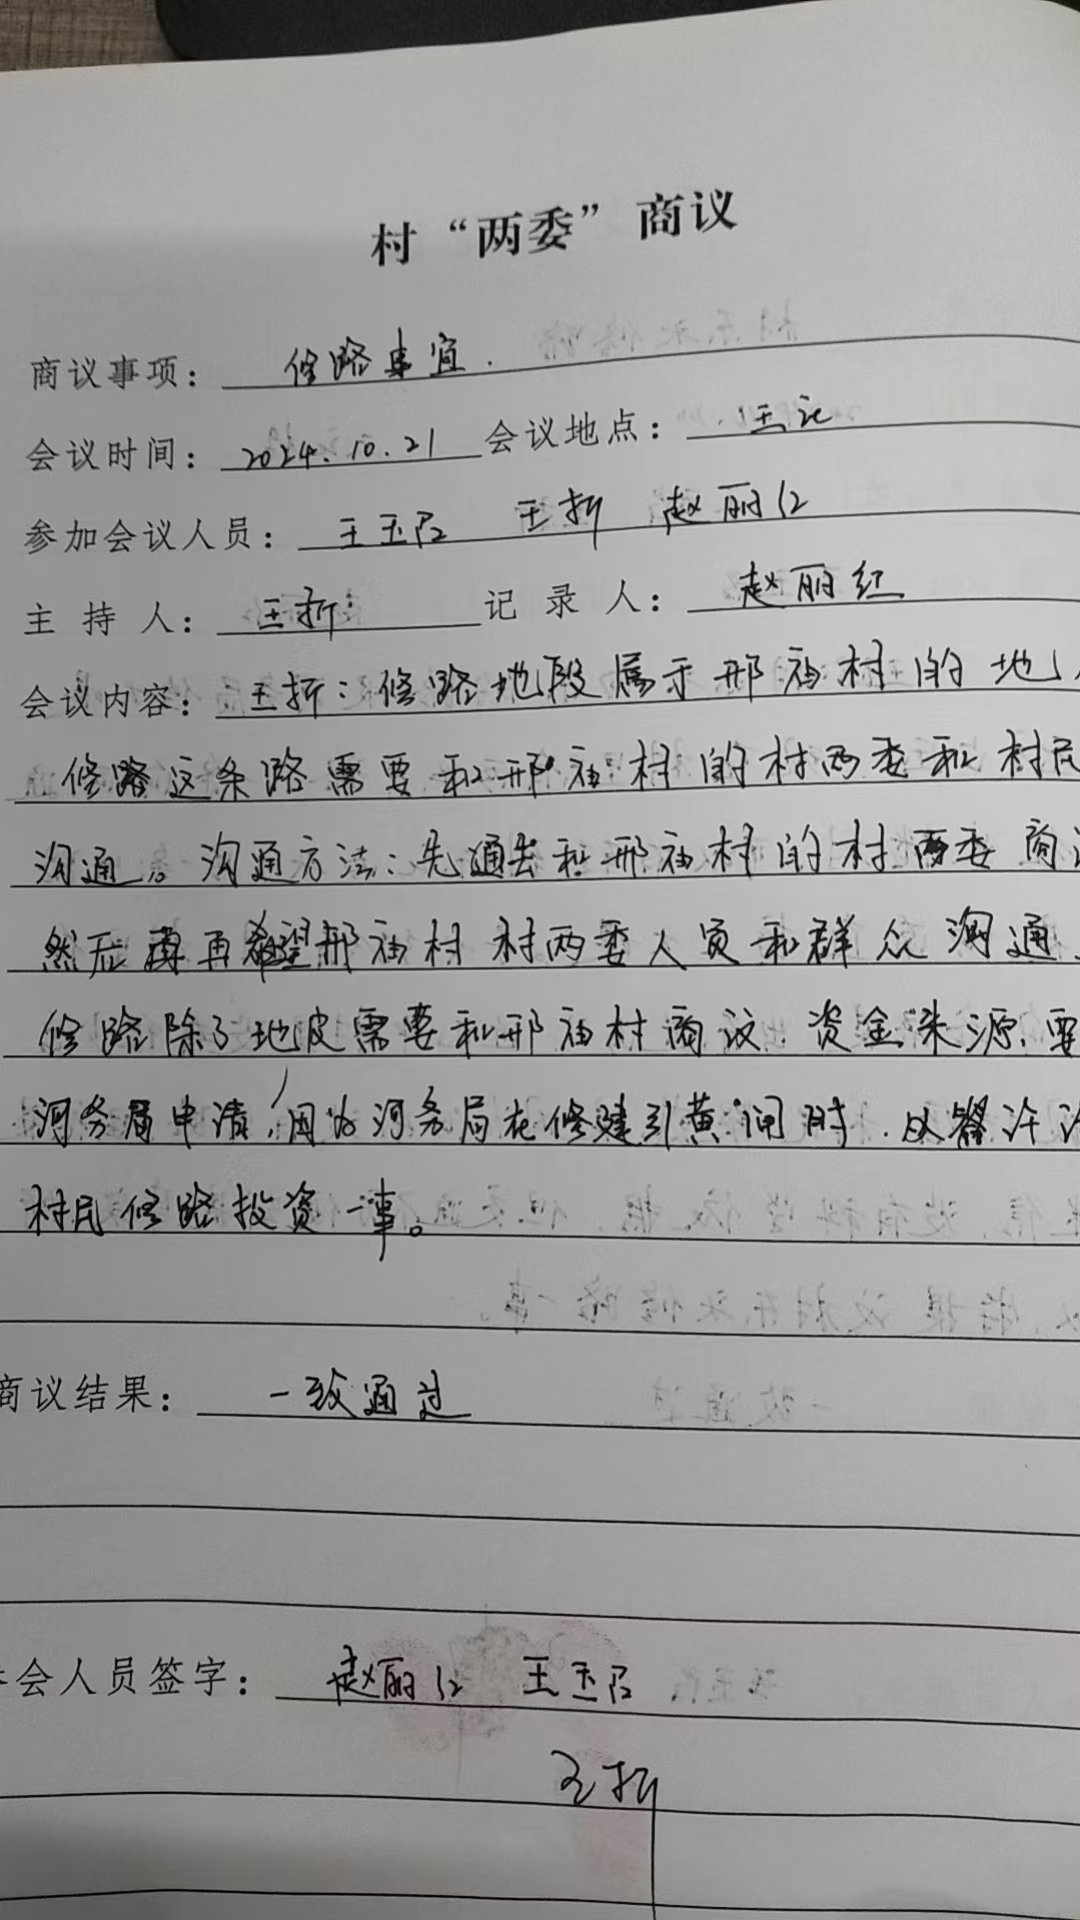 村“两委”商议
商议事项： 修路事宜.
会议时间： 2024.10.21 会议地点： 王讫
参加会议人员： 王玉君 王折 赵丽红
主 持 人： 王折 记 录 人： 赵丽红
会议内容： 王折：修路地段属于邢庙村的地
修路这条路需要和邢庙村的村两委和村民
沟通。沟通方法：先通去和邢庙村的村两委商
然后再希望邢庙村村两委人员和群众沟通
修路除了地皮需要和邢庙村商议.资金来源,要
河务局申请,因为河务局在修建引黄闸时.以
村民修路投资一事。
商议结果： 一致通过
会人员签字： 赵丽红 王玉君
王折